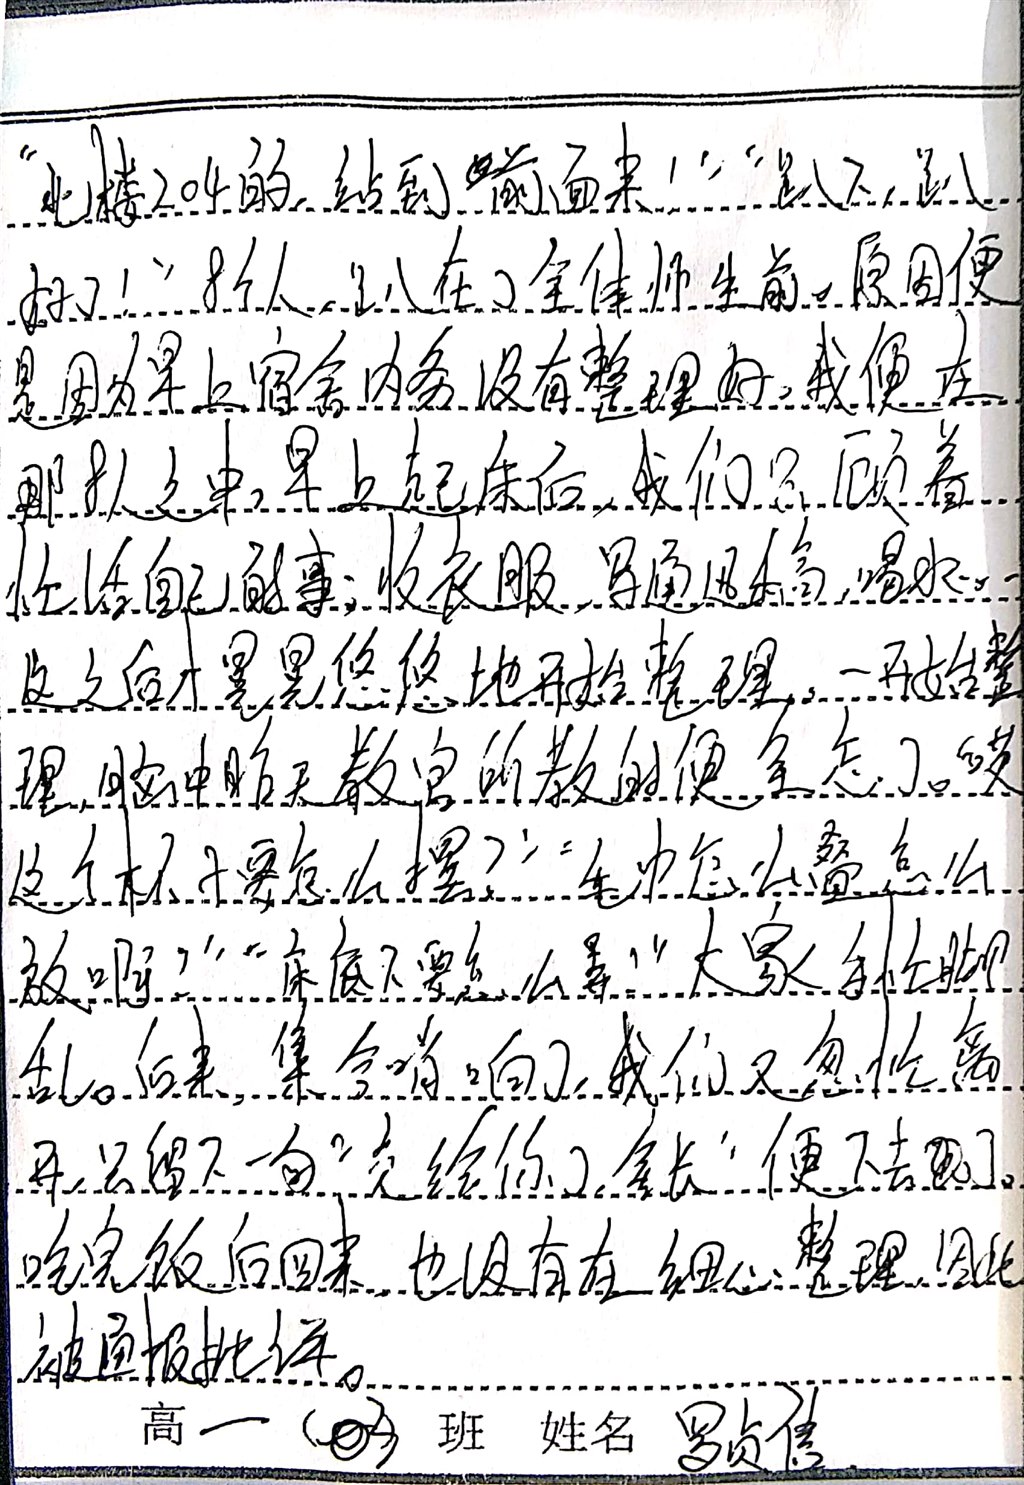 “北楼204的，站到前面来！”“趴下，趴
好了！”8个人，趴在了全体师生前。原因便
是因为早上宿舍内务没有整理好。我便在
那8人之中。早上起床后，我们只顾着
忙活自己的事；收衣服，写通迅稿，喝水。
这之后才晃晃悠悠地开始整理。一开始整
理，脑中昨天教官所教的便全忘了。“哎
这个杯子要怎么摆？”“毛巾怎么叠怎么
放啊？”“床底下要怎么弄”大家手忙脚
乱。后来，集合哨响了，我们又匆忙离
开，只留下一句“交给你了舍长”便下去了。
吃完饭后回来，也没有在细心整理，因此
被通报批评。
高一 班 姓名